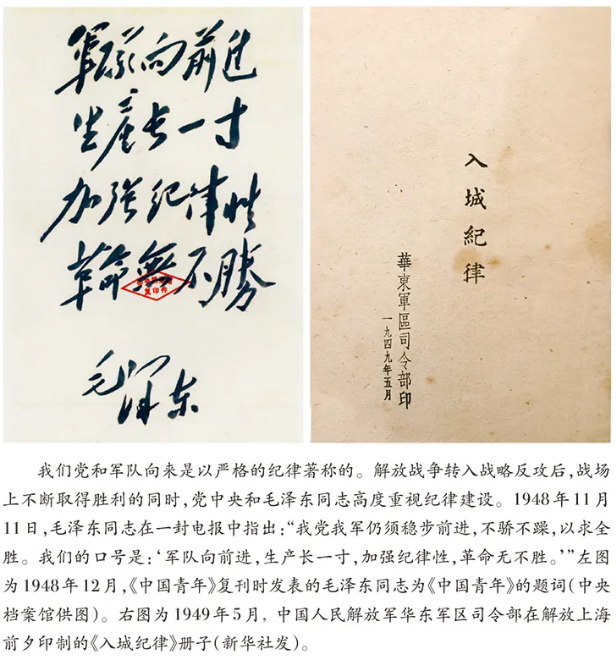 軍队向前进
生产长一寸
加强纪律性
革命無不勝
毛泽东
复印件
入城紀律
華東軍區司令部印
一九四九年五月
我们党和军队向来是以严格的纪律著称的。解放战争转入战略反攻后,战场
上不断取得胜利的同时,党中央和毛泽东同志高度重视纪律建设。1948年11月
11日,毛泽东同志在一封电报中指出:“我党我军仍须稳步前进,不骄不躁,以求全
胜。我们的口号是:‘军队向前进,生产长一寸,加强纪律性,革命无不胜。’”左图
为1948年12月,《中国青年》复刊时发表的毛泽东同志为《中国青年》的题词(中央
档案馆供图)。右图为1949年5月,中国人民解放军华东军区司令部在解放上海
前夕印制的《入城纪律》册子(新华社发)。